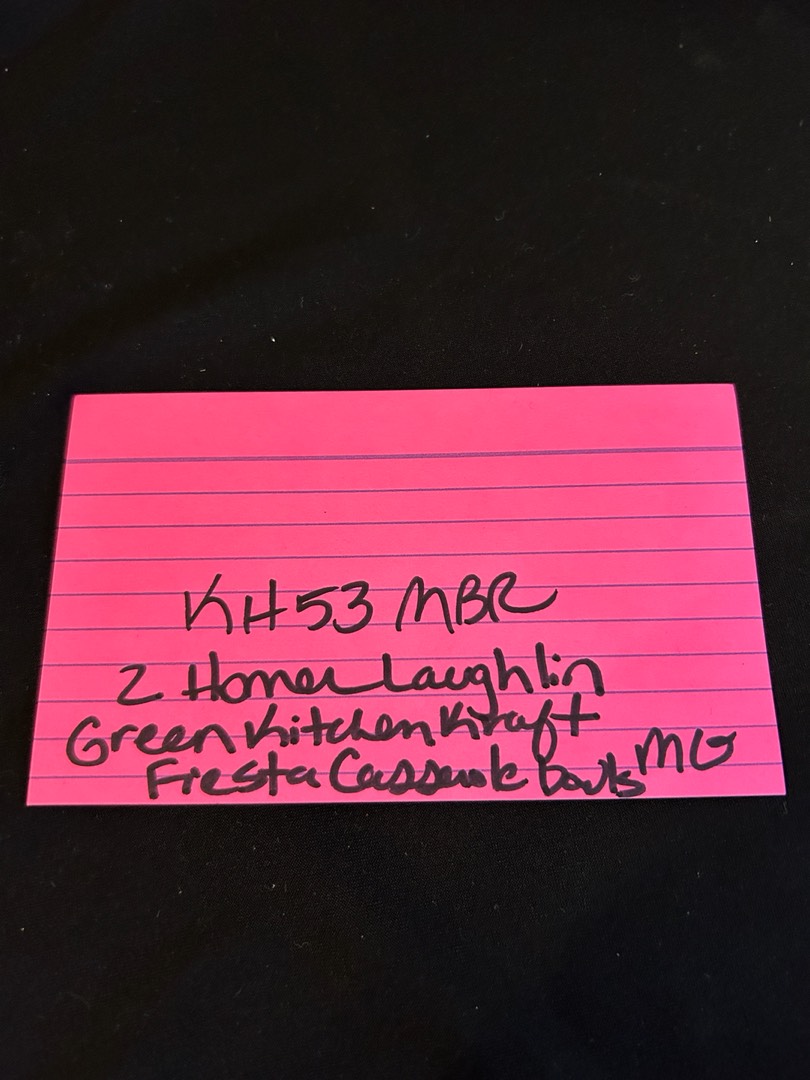 KH53 MBR
2 Homer Laughlin
Green Kitchen Kraft
Fiesta Casserole bowls MG